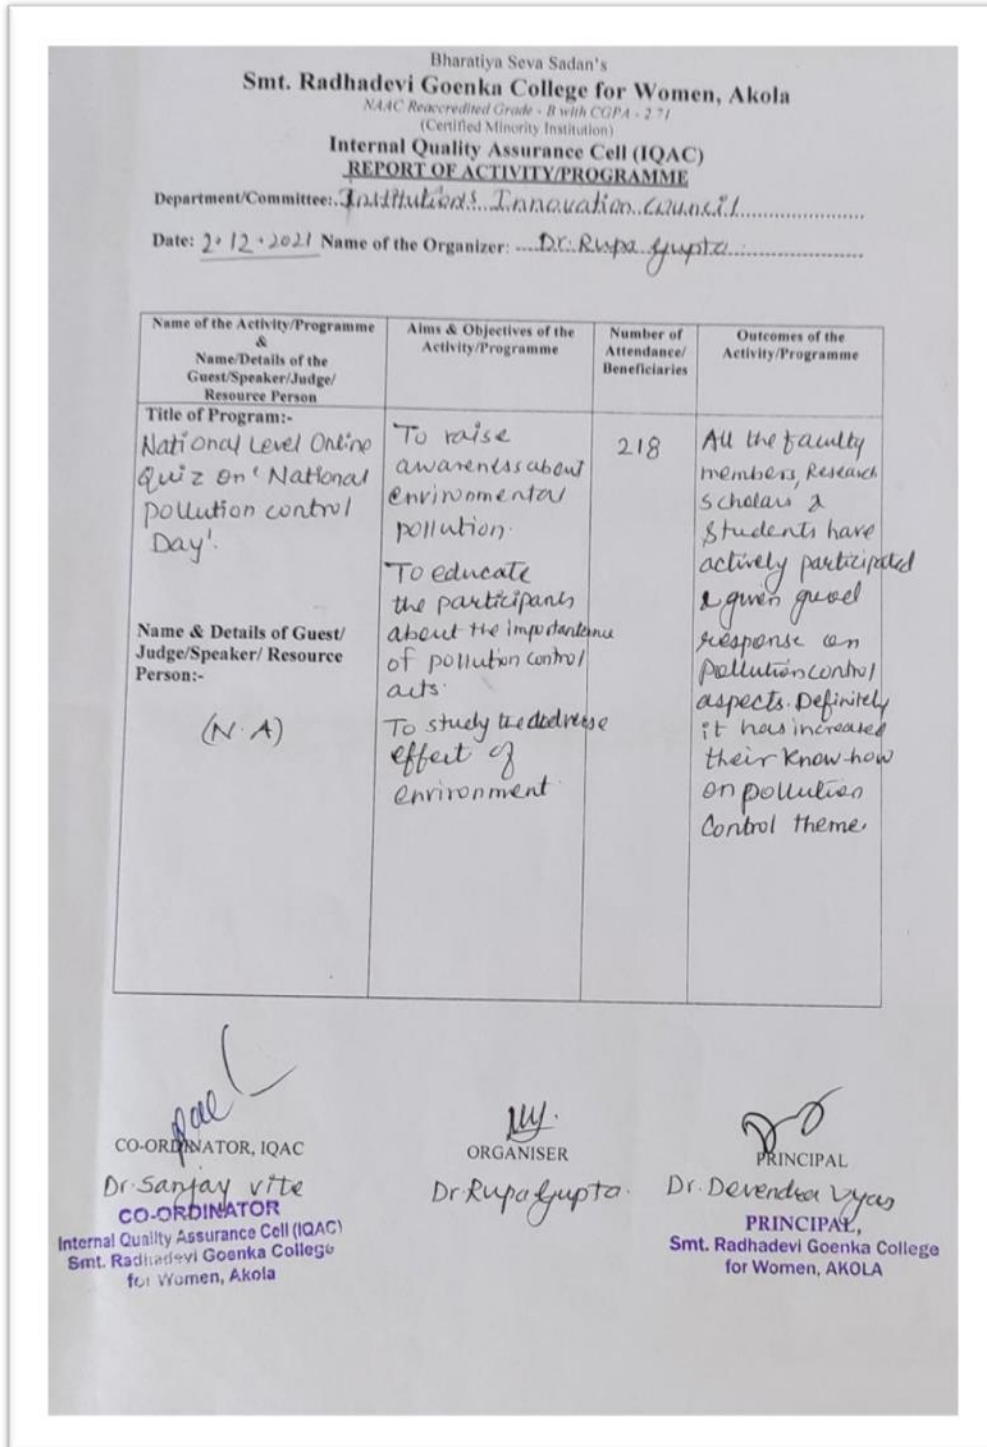 Bharatiya Seva Sadan's
Smt. Radhadevi Goenka College for Women, Akola
NAAC Reaccredited Grade - B with CGPA - 2.71
(Certified Minority Institution)
Internal Quality Assurance Cell (IQAC)
REPORT OF ACTIVITY/PROGRAMME
Department/Committee: Institution's Innovation council
Date: 2.12.2021 Name of the Organizer: Dr. Rupa Gupta
Name of the Activity/Programme
&
Name/Details of the
Guest/Speaker/Judge/
Resource Person
Aims & Objectives of the
Activity/Programme
Number of
Attendance/
Beneficiaries
Outcomes of the
Activity/Programme
Title of Program:-
National Level Online
Quiz on 'National
pollution control
Day'.
Name & Details of Guest/
Judge/Speaker/ Resource
Person:-
(N.A)
To raise
awareness about
environmental
pollution.
To educate
the participants
about the
of pollution control
acts.
To study the
effect of
environment
218
All the faculty
members, Research
scholars &
Students have
actively participated
& given good
response on
pollution control
aspects. Definitely
it has increased
their know-how
on pollution
Control theme.
CO-ORDINATOR, IQAC
Dr. Sanjay Vite
CO-ORDINATOR
Internal Quality Assurance Cell (IQAC)
Smt. Radhadevi Goenka College
for Women, Akola
ORGANISER
Dr Rupa Gupta.
PRINCIPAL
Dr. Devendra Vyas
PRINCIPAL,
Smt. Radhadevi Goenka College
for Women, AKOLA